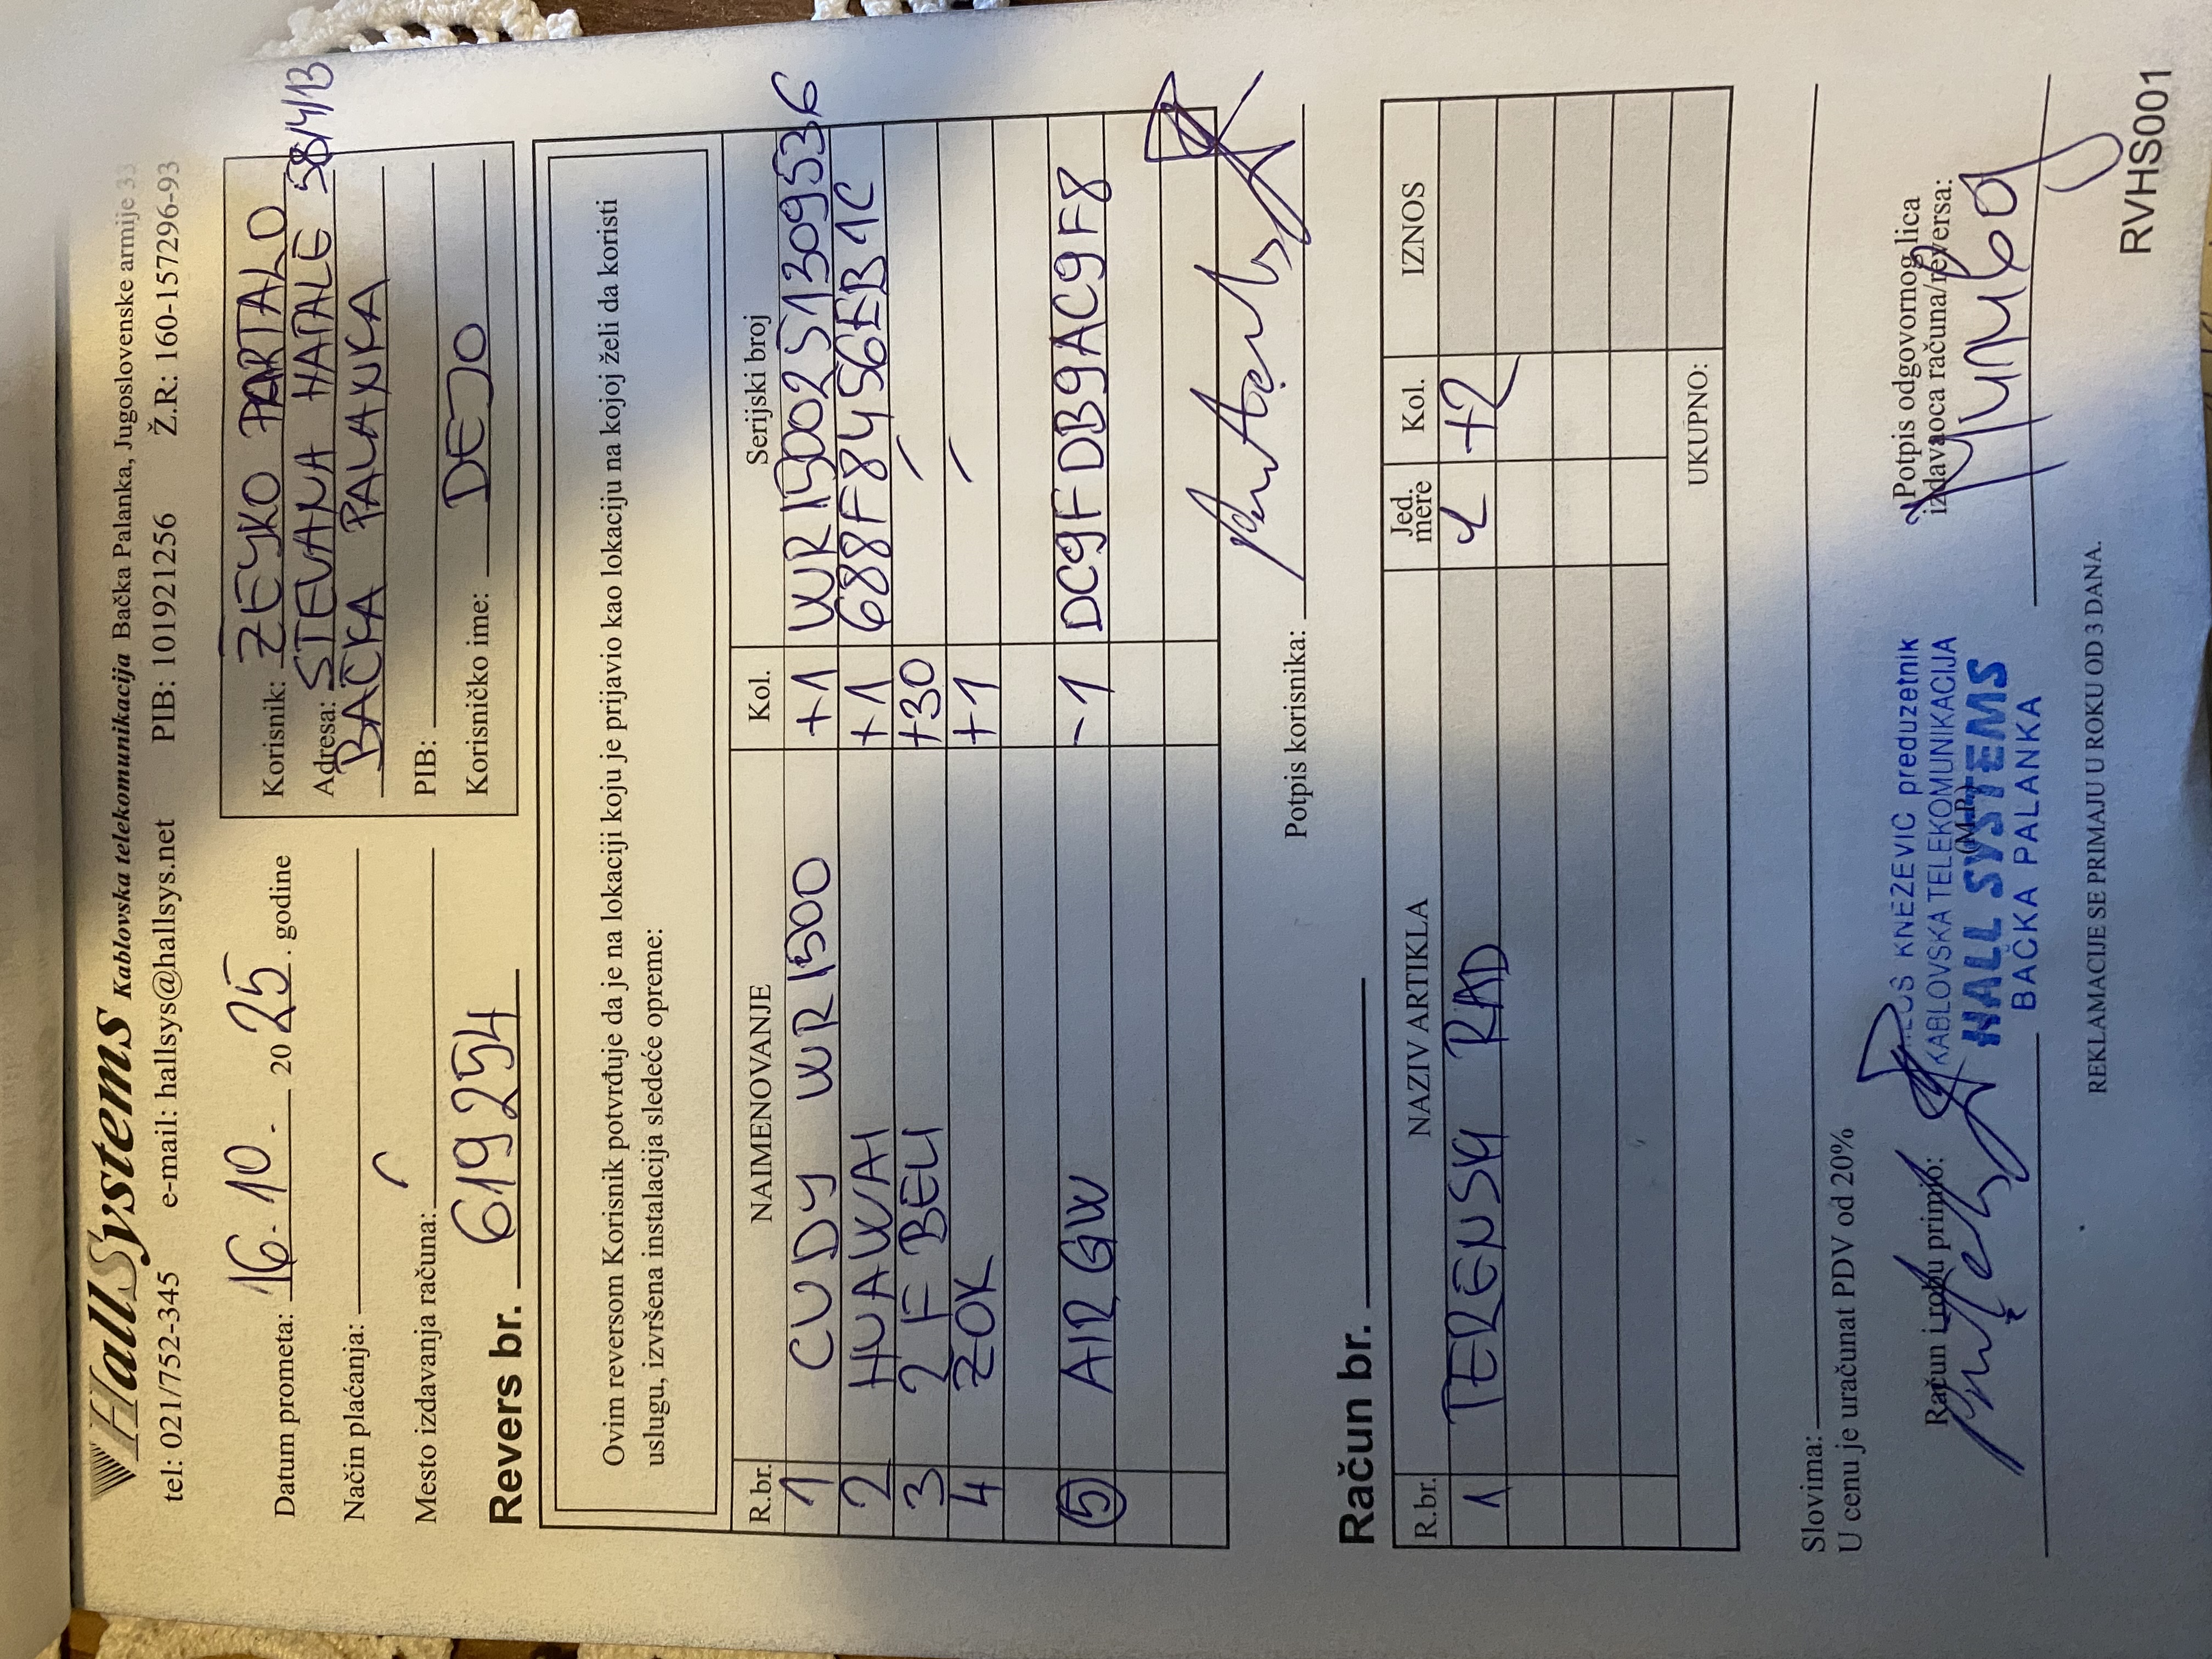 HallSystems Kablovska telekomunikacija Bačka Palanka, Jugoslovenske armije 33
tel: 021/752-345 e-mail: hallsys@hallsys.net PIB: 101921256 Ž.R: 160-157296-93
Datum prometa: 16. 10. 2025. godine
Način plaćanja:
Mesto izdavanja računa:
Korisnik: ŽELJKO PARTALO
Adresa: STEVANA HATALE 58/4/13
BAČKA PALANKA
PIB:
Korisničko ime: DEJO
Revers br. 619254
Ovim reversom Korisnik potvrđuje da je na lokaciji koju je prijavio kao lokaciju na kojoj želi da koristi
uslugu, izvršena instalacija sledeće opreme:
R.br. NAIMENOVANJE Kol. Serijski broj
1 CUDY WR1500 +1 WR15002S1309536
2 HUAWAI +1 688F8456EB1C
3 2F BELI +30 /
4 ZOK +1 /
5 AIR GW -1 DC9FDB9AC9F8
Potpis korisnika:
Račun br.
R.br. NAZIV ARTIKLA Jed. mere Kol. IZNOS
1 TERENSKI RAD +2
UKUPNO:
Slovima:
U cenu je uračunat PDV od 20%
Račun i robu primio:
(M.P.)
KNEZEVIC preduzetnik
KABLOVSKA TELEKOMUNIKACIJA
HALL SYSTEMS
BAČKA PALANKA
Potpis odgovornog lica
izdavaoca računa/reversa:
REKLAMACIJE SE PRIMAJU U ROKU OD 3 DANA.
RVHS001